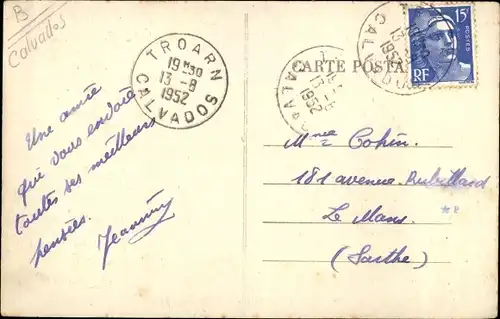 B
Calvados
TROARN
19H30
13-8
1952
CALVADOS
CARTE POSTA
15F
POSTES
RF
Une amie
qui vous envoie
toutes ses meilleurs
pensées.
Jeannine
Mme Cohin.
181 avenue Rubillard
Le Mans.
(Sarthe)